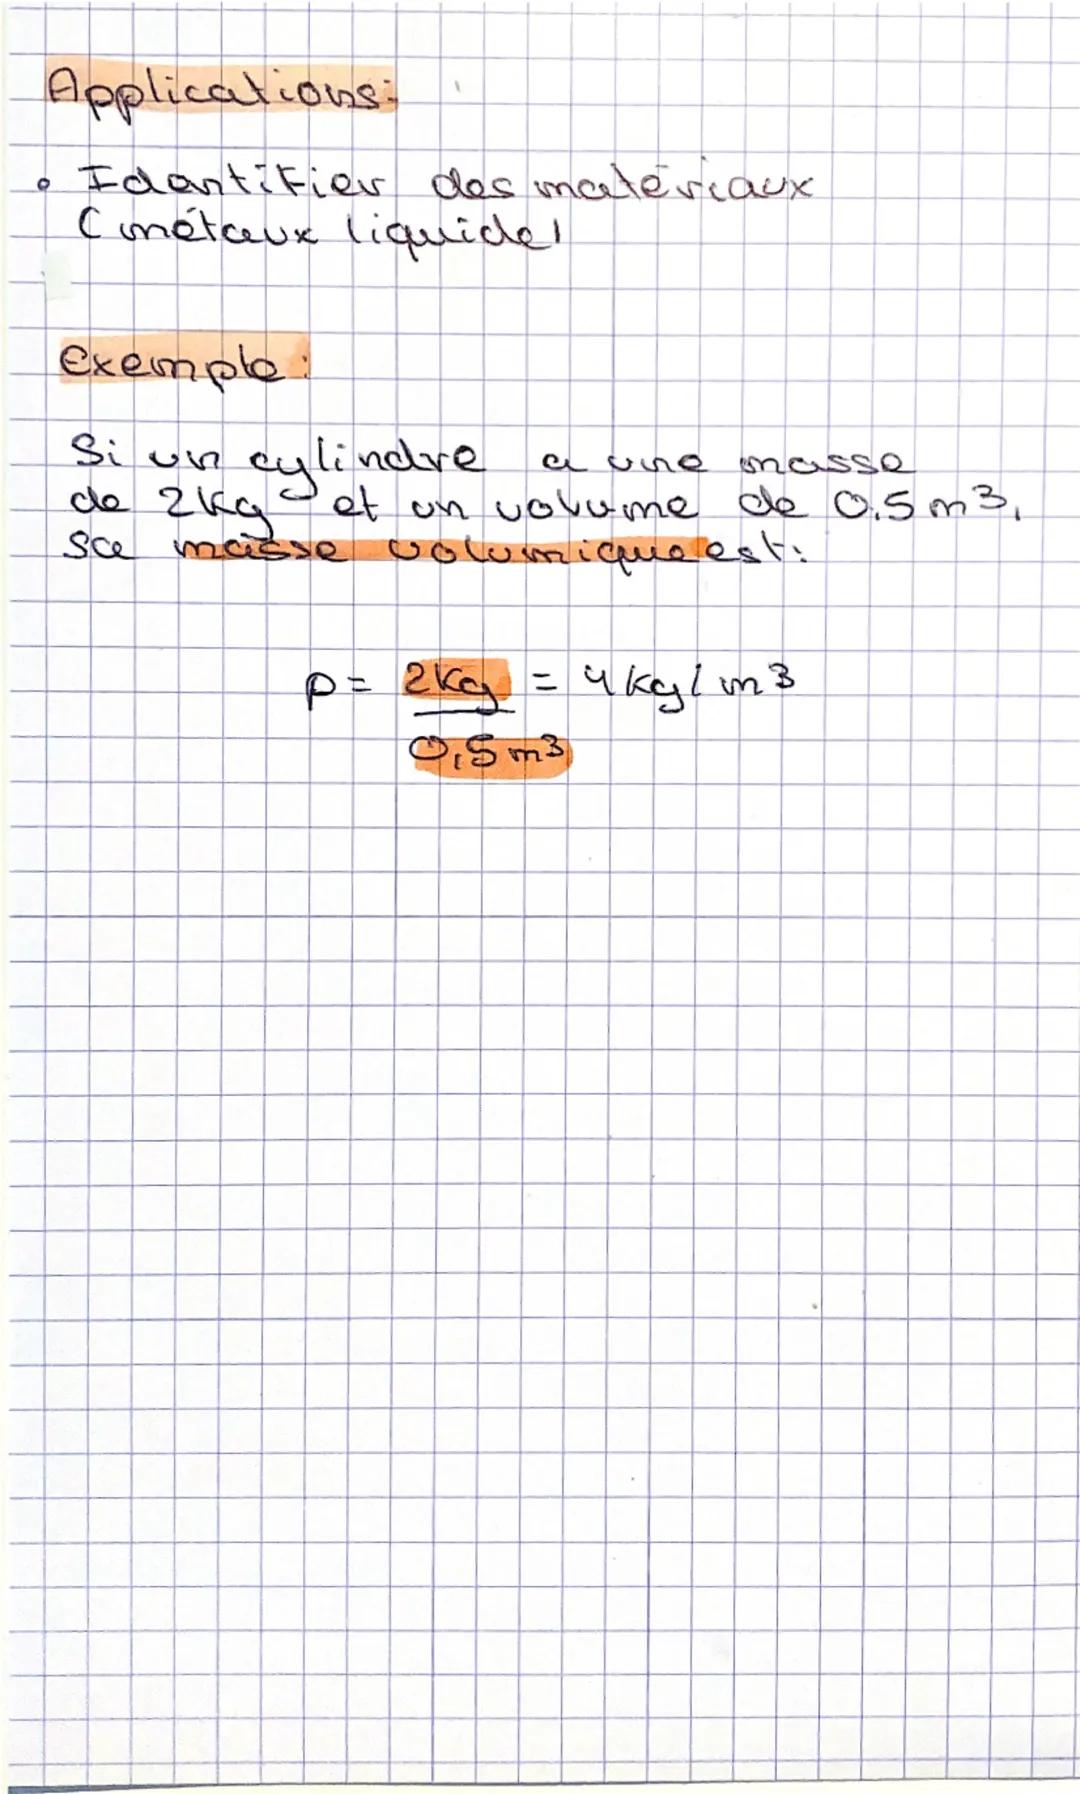 Applications:
• Idantifier des matériaux
(métaux liquide)
Exemple:
Si un cylindre a une masse
de 2Kg et un volume de 0.5 m3,
sa masse volumique est:
p = 2Kg = 4 kg/m3
0,5 m3